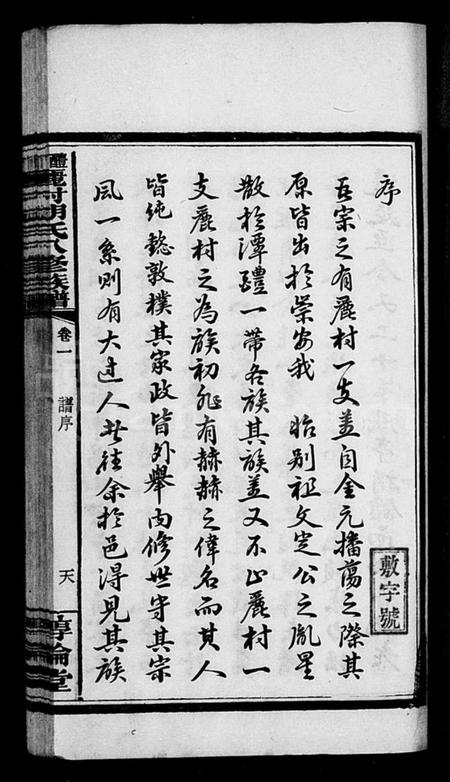 序
吾宗之有麗村一支蓋自金元播蕩之際其
原皆出於崇安我　始別祖文定公之胤星
散於潭醴一帶各族其族蓋又不止麗村一
支麗村之為族初非有赫赫之偉名而其人
皆純懿敦樸其家政皆外舉內修世守其宗
風一系則有大过人者往余於邑得見其族
敷字號
醴麗村胡氏八修族譜
卷一
譜序
天
惇倫堂